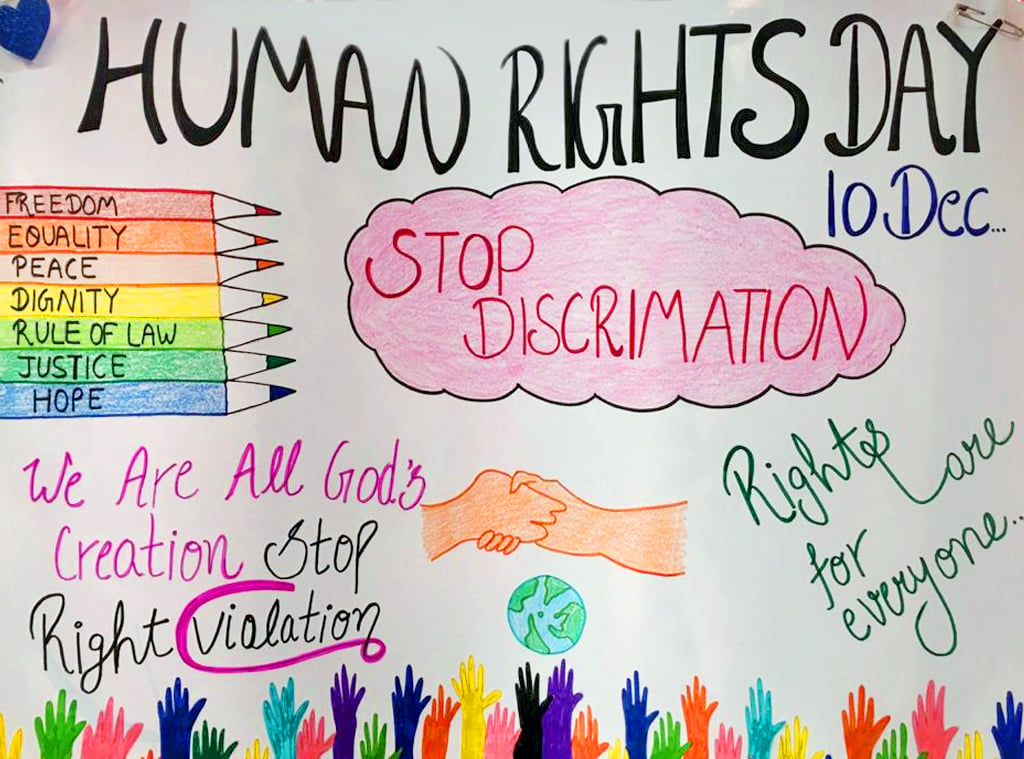 HUMAN RIGHTS DAY
10 Dec...
FREEDOM
EQUALITY
PEACE
DIGNITY
RULE OF LAW
JUSTICE
HOPE
STOP
DISCRIMATION
We Are All God's
Creation Stop
Right Violation
Rights are
for
everyone...